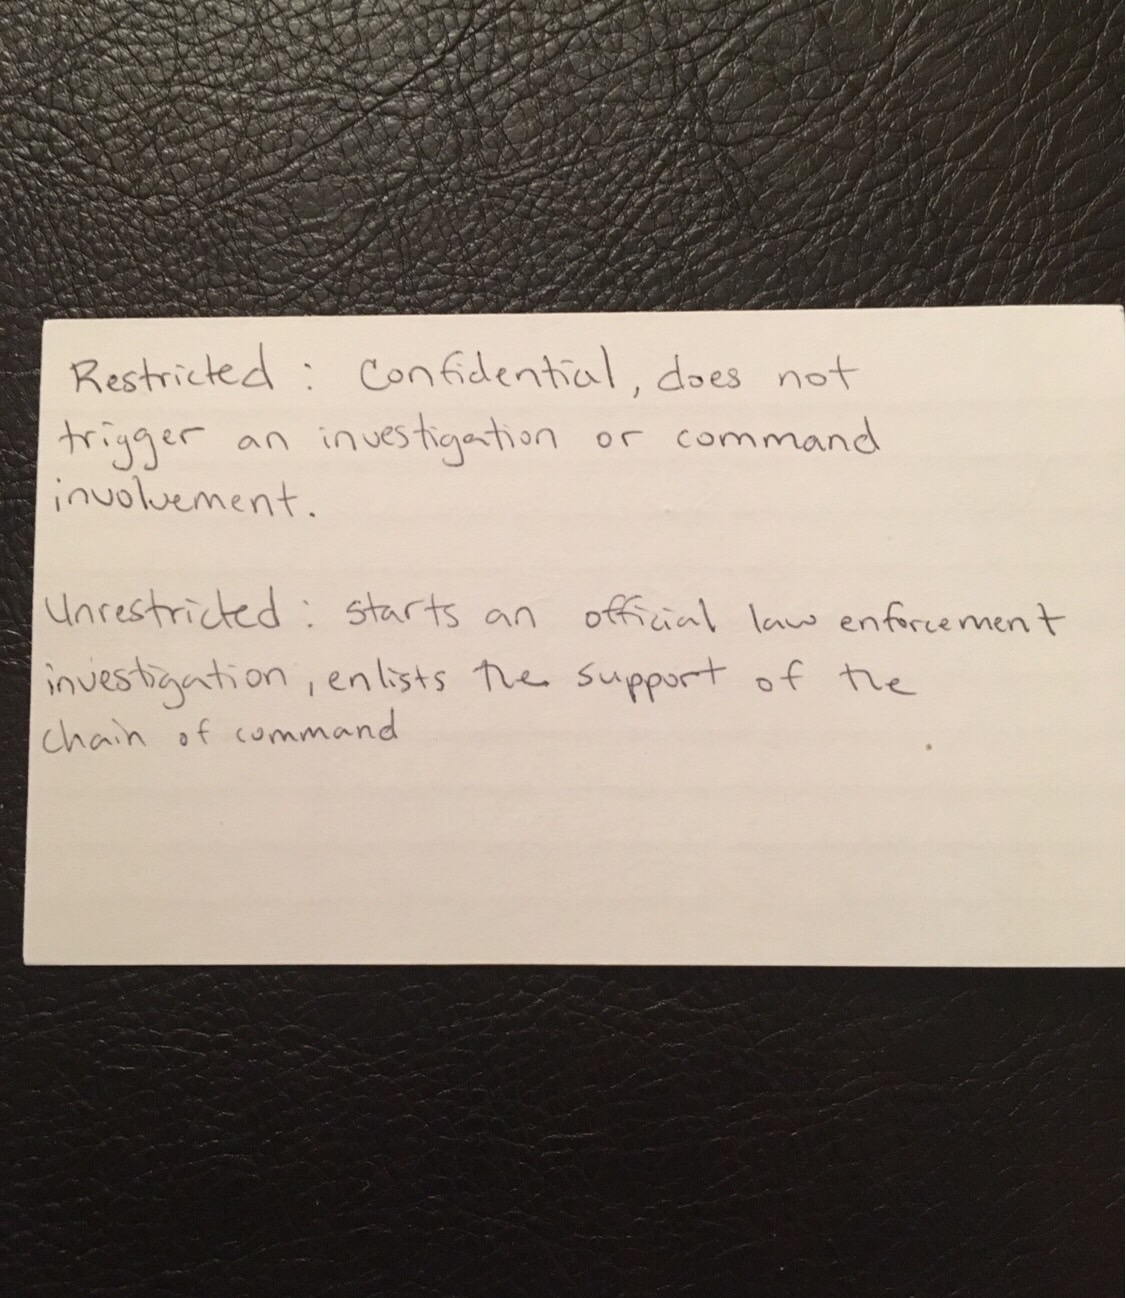 Restricted: Confidential, does not
trigger an investigation or command
involvement.
Unrestricted: starts an official law enforcement
investigation, enlists the support of the
chain of command